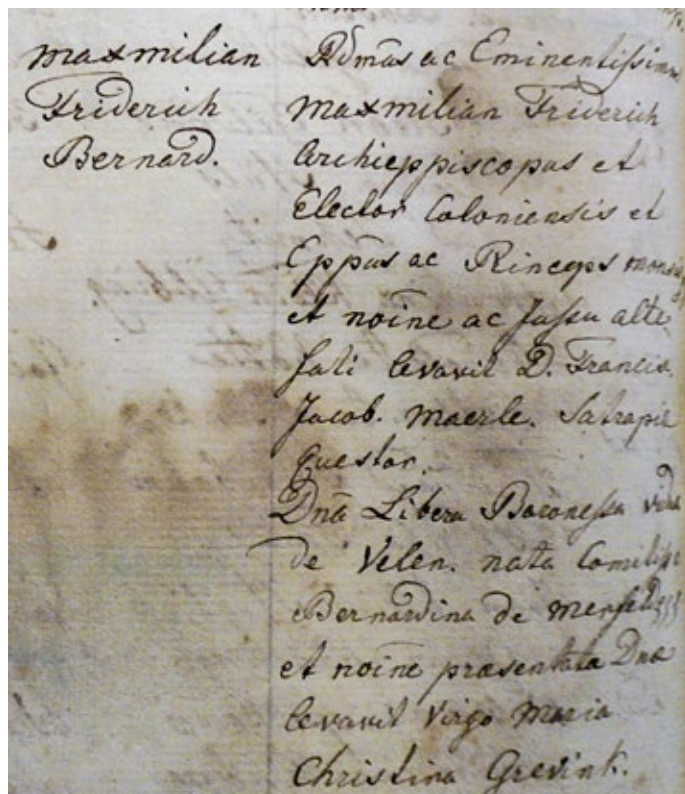 Maxmilian
Friderich
Bernard.
Rdmus ac Eminentissimus
Maxmilian Friderich
Archieppiscopus et
Elector Coloniensis et
Eppus ac Princeps
et noĩne ac Jussu alte
fati levavit D. Francis.
Jacob. Maerle. Satrapiæ
Questor.
Dna Libera Baronessa
de Velen. nata Comitissa
Bernardina de
et noĩne præsentata Dna
levavit Virgo Maria
Christina Grevink.